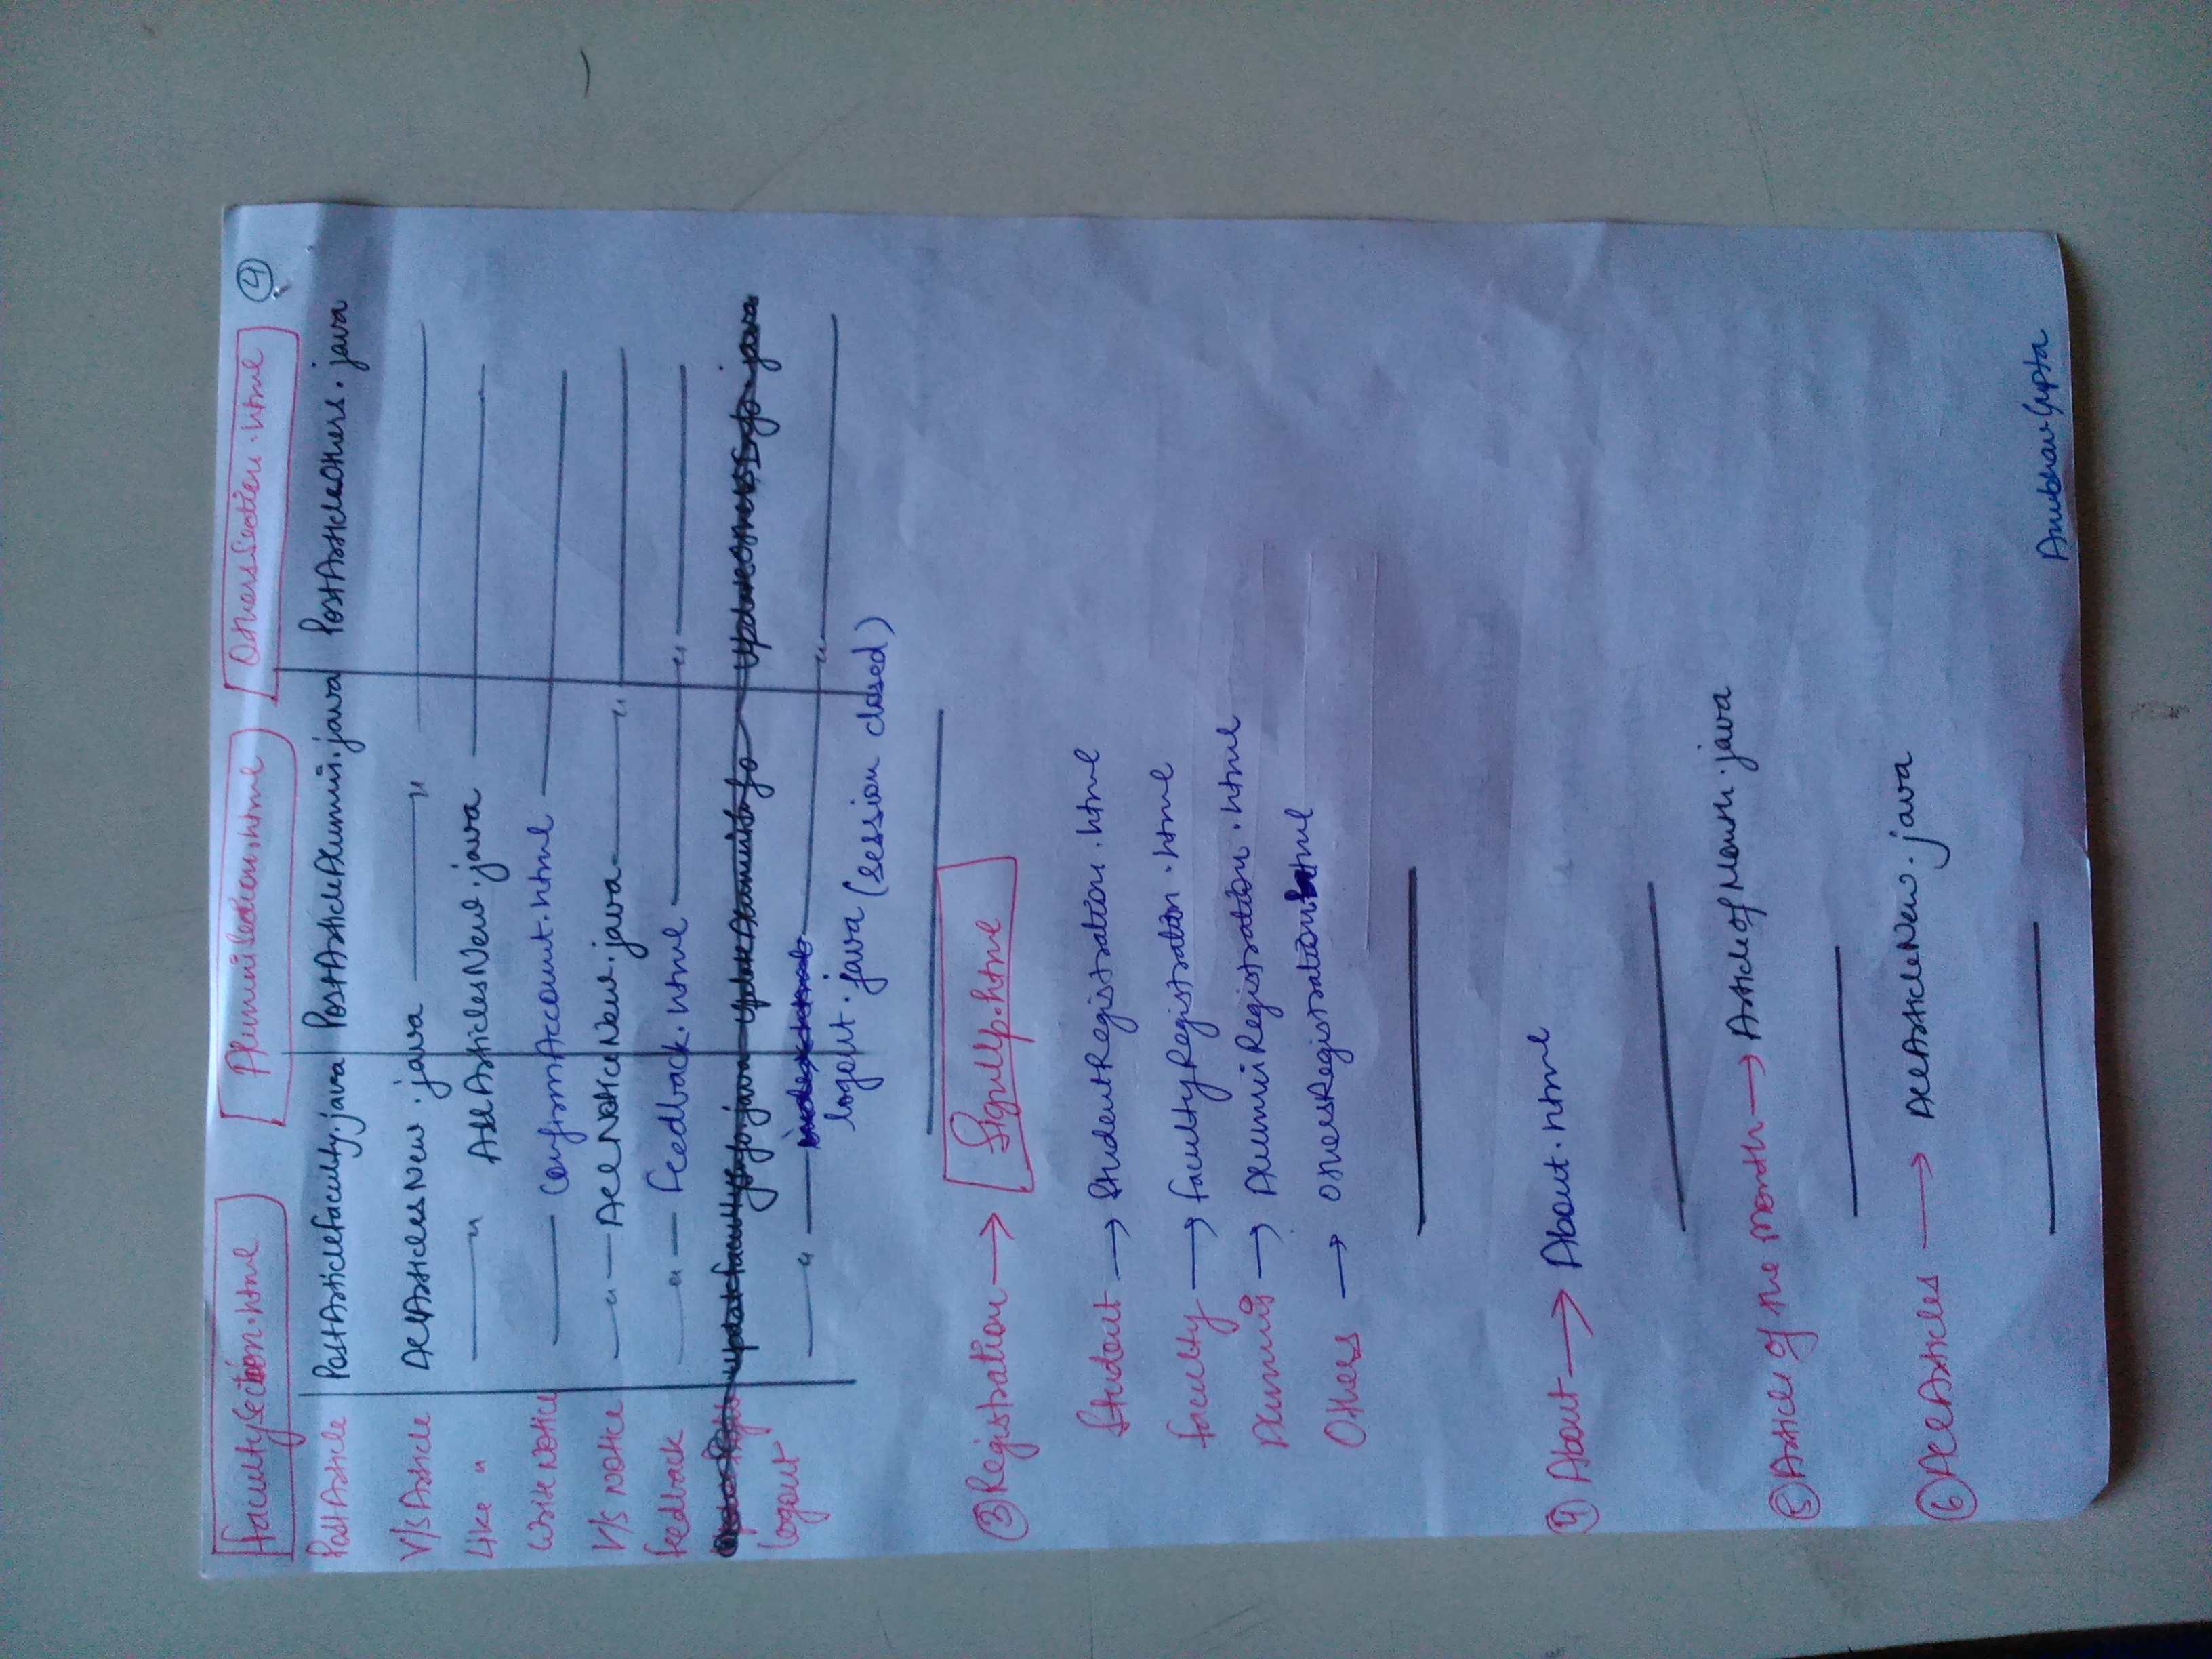 FacultySection.html AlumniSection.html OthersSection.html 4
PostArticle PostArticleFaculty.java PostArticleAlumni.java PostArticleOthers.java
V/s Article AllArticlesNew.java — " —
Like " — " AllArticlesNew.java —
Write Notice — ConfirmAccount.html —
V/s Notice — " — AllNoticeNew.java — " —
Feedback — " — Feedback.html — " —
UpdateFacultyInfo.java UpdateAlumniInfo UpdateOthersInfo.java
logout — " — index.html — " —
logout.java (session closed)
③ Registration → SignUp.html
Student → StudentRegistration.html
Faculty → FacultyRegistration.html
Alumni → AlumniRegistration.html
Others → OthersRegistration.html
④ About → About.html
⑤ Article of the Month → ArticleofMonth.java
⑥ AllArticles → AllArticleNew.java
Anubhav Gupta